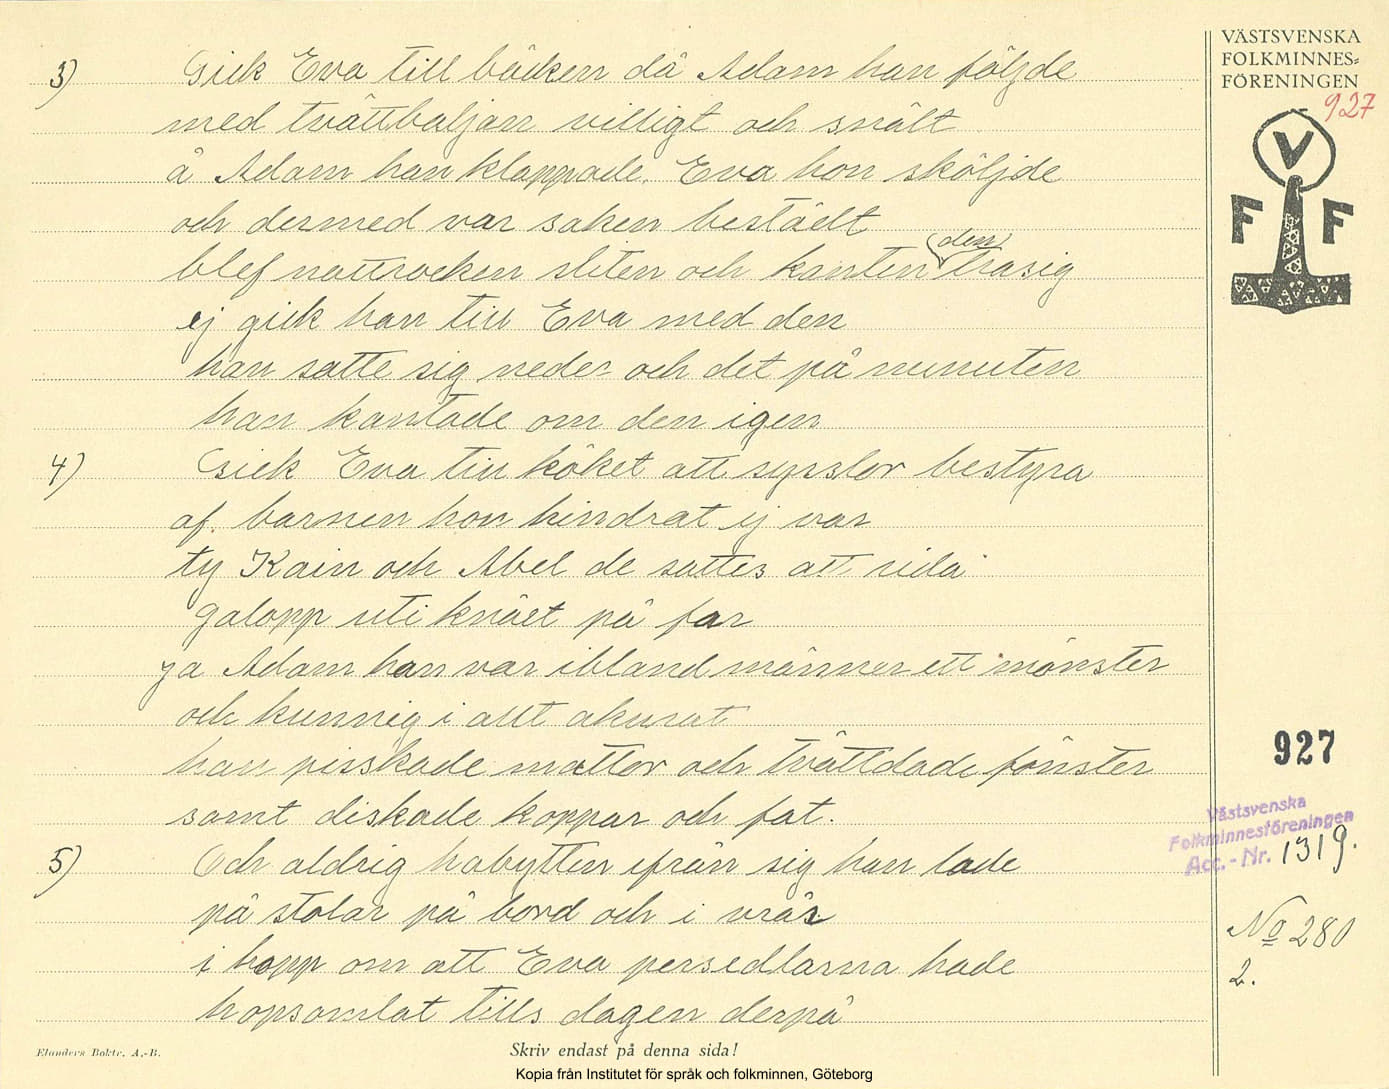 VÄSTSVENSKA
FOLKMINNES-
FÖRENINGEN
927
V
F F
3) Gick Eva till bäcken då Adam han följde
med tvättbaljan villigt och snält
å Adam han klappade. Eva hon sköljde
och dermed var saken bestäelt
blef nattrocken sliten och kanten (den) trasig
ej gick han till Eva med den
han satte sig neder och det på minuten
han kantade om den igen
4) Gick Eva till köket att sysslor bestyra
af. barnen hon hindrat ej var
ty Kain och Abel de sattes att rida
galopp uti knäet på far
ja Adam han var ibland männer ett mönster
och kunnig i allt akurat
han pisskade mattor och tvättdade fönster
samt diskade koppar och fat.
5) Och aldrig habytten ifrån sig han lade
på stolar på bord och i vrår
i hopp om att Eva persedlarna hade
hopsamlat tills dagen derpå
927
Västsvenska
Folkminnesföreningen
Acc.-Nr. 1319.
No 280
2.
Elanders Boktr. A.-B.
Skriv endast på denna sida!
Kopia från Institutet för språk och folkminnen, Göteborg